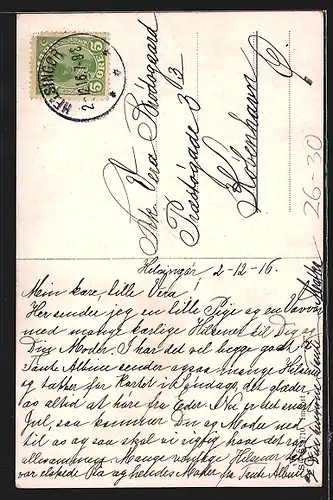 HELSINGØR
5 ØRE 5
Frk. Vera Brodsgaard
Præstøgade 3
København
Ø.
26-30
Helsingør 2-12-16.
Min kære, lille Vera!
Her sender jeg en lille Pige og en Vovvov
med mange kærlige Hilsener til Dig og
Din Moder. I har det vel begge godt?
Tante Albine sender ogsaa mange Hilsener
og takker for Kortet i Søndags, det glæder
os altid at høre fra Eder. Nu er det snart
Jul, saa kommer Du og Moder ned
til os og saa skal vi rigtig have det rart
allesammen. Mange venlige Hilsner
fra Tante Albine